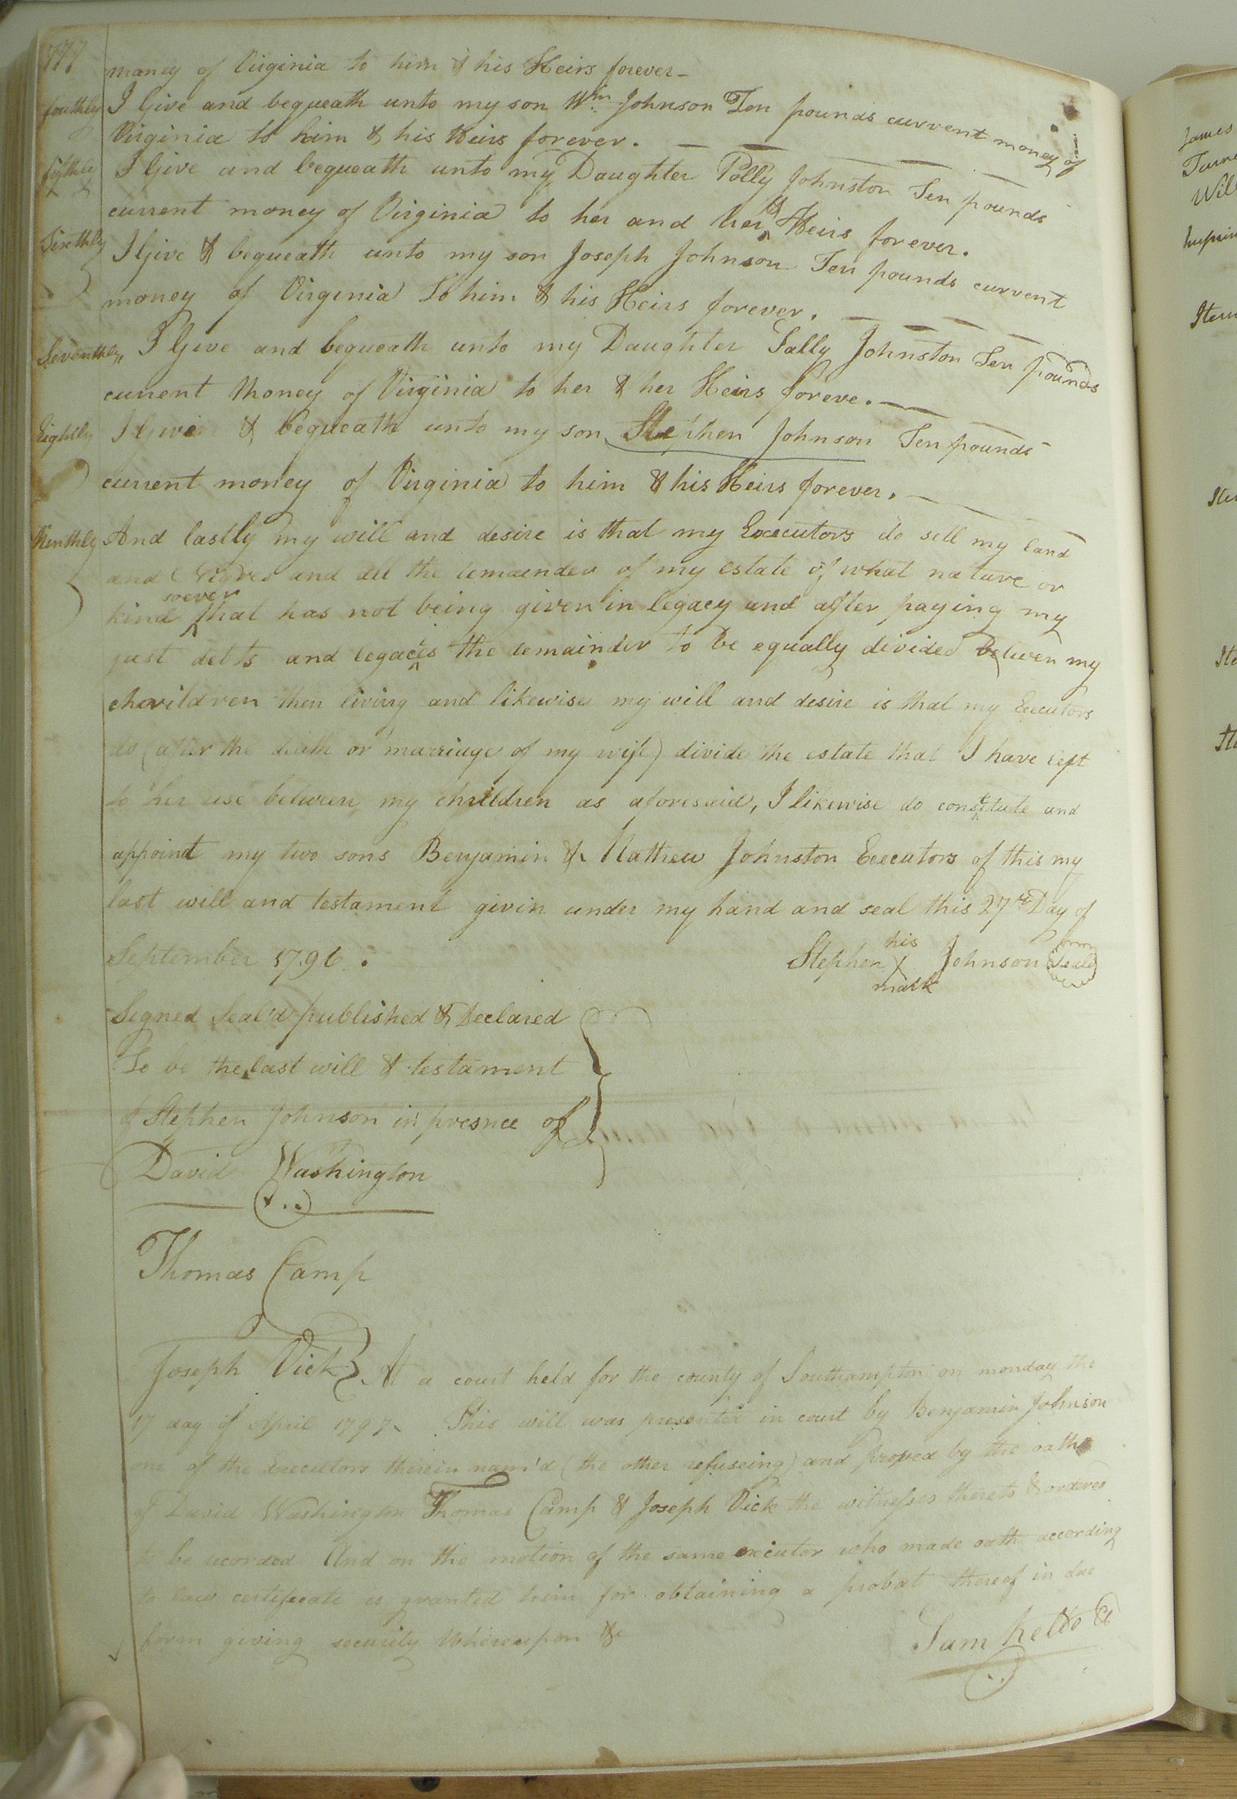 777
money of Virginia to him & his Heirs forever -
fouthly I Give and bequeath unto my son Wm Johnson Ten pounds current money of
Virginia to him & his Heirs forever.
fifthly I Give and bequeath unto my Daughter Polly Johnston Ten pounds
current money of Virginia to her and her Heirs forever.
Sixthly I Give & bequeath unto my son Joseph Johnson Ten pounds current
money of Virginia To him & his Heirs forever.
Seventhly I Give and bequeath unto my Daughter Sally Johnston Ten pounds
current Money of Virginia to her & her Heirs foreve.
Eightly I Give & bequeath unto my son Stephen Johnson Ten pounds
current money of Virginia to him & his Heirs forever.
Ninthly And lastly my will and desire is that my Executors do sell my land
and and all the remainder of my estate of what nature or
kind soever that has not being given in legacy and after paying my
just debts and legacies the remainder to be equally divided between my
children then living and likewise my will and desire is that my Executors
do (after the death or marriage of my wife) divide the estate that I have left
to her use between my children as aforesaid, I likewise do constitute and
appoint my two sons Benjamin & Mathew Johnston Executors of this my
last will and testament givin under my hand and seal this 27th Day of
September 1796. Stephen his X mark Johnson Seale
Signed Seal'd published & Declared
To be the last will & testament
of Stephen Johnson in presnce of
David Washington
Thomas Camp
Joseph Vick At a court held for the county of Southampton on monday the
17 day of April 1797. This will was presented in court by Benjamin Johnson
one of the executors therein nam'd (the other refuseing) and proved by the oaths
of David Washington Thomas Camp & Joseph Vick the witnesses thereto & ordered
to be recorded And on the motion of the same exicutor who made oath according
to law certificate is granted him for obtaining a probat thereof in due
form giving security Whereupon &c
Sam Kello Cl
James
Turne
Wil
Item